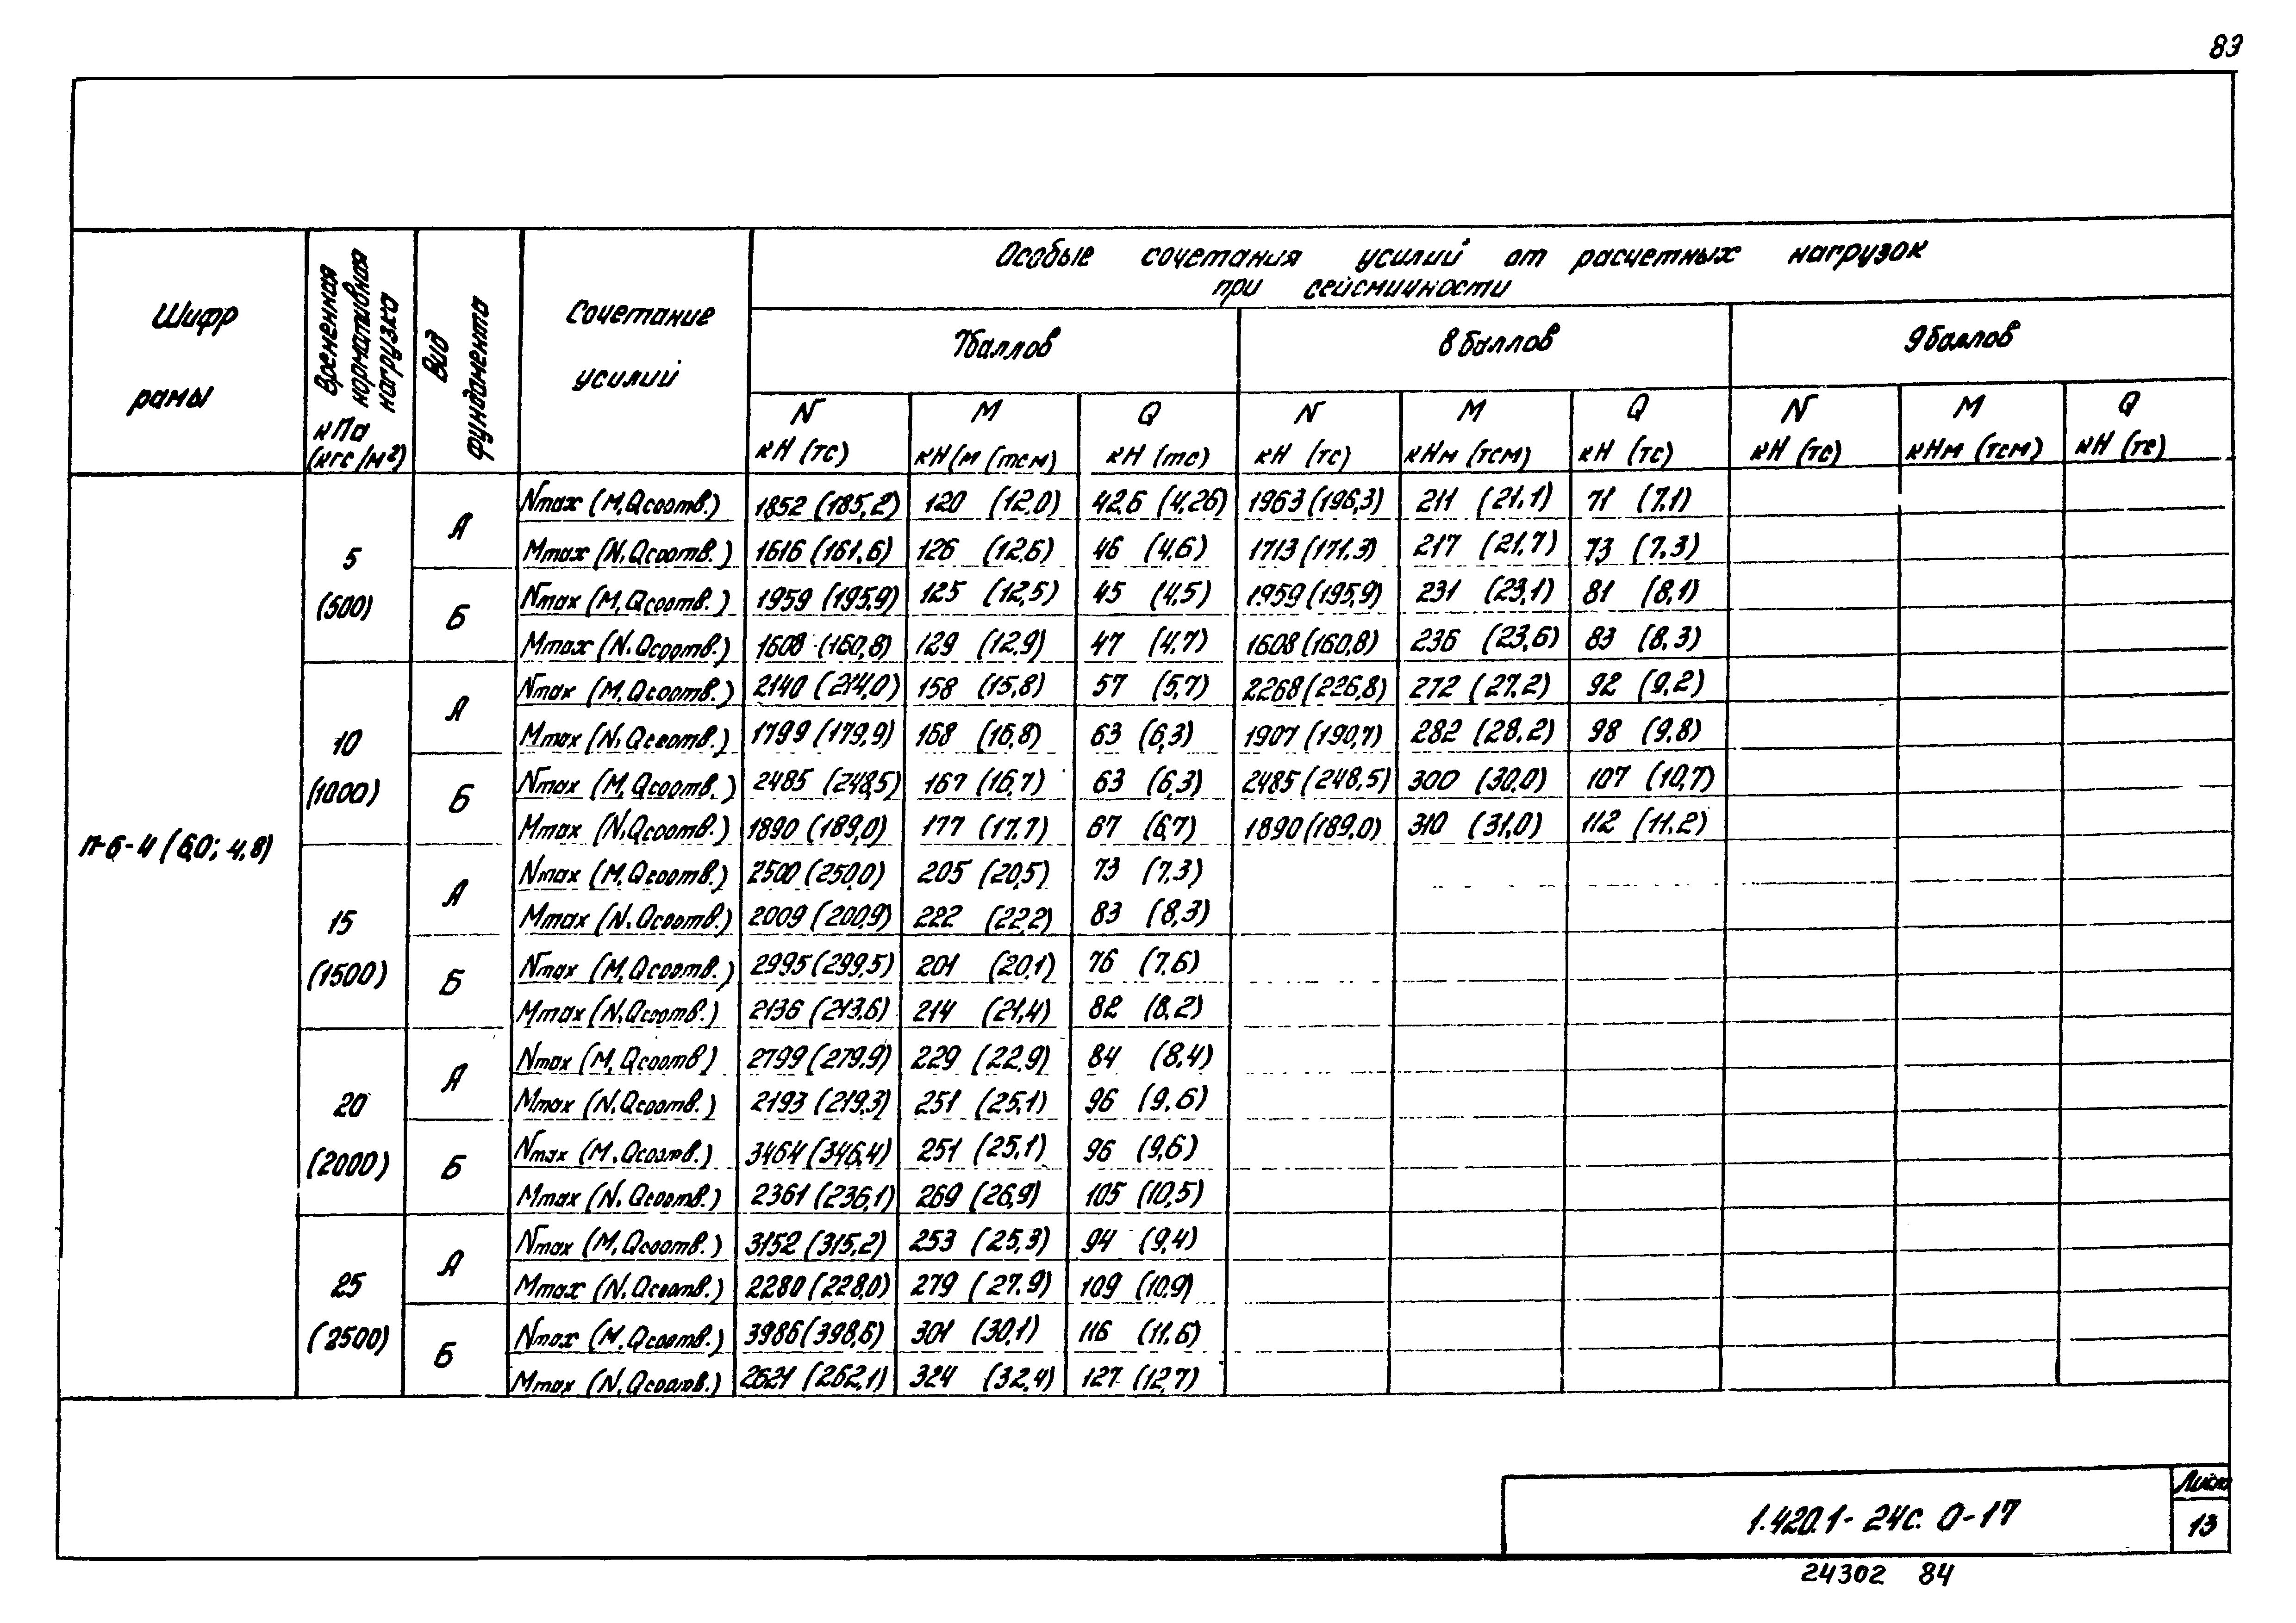 83
Шифр рамы
Временная нормативная нагрузка кПа (кгс/м²)
Вид фундамента
Сочетание усилий
Особые сочетания усилий от расчетных нагрузок
при сейсмичности
7баллов 8 баллов 9 баллов
N кН (тс) M кН(м (тсм) Q кН (тс) N кН (тс) M кНм (тсм) Q кН (тс) N кН (тс) M кНм (тсм) Q кН (тс)
П-6-4 (6,0; 4,8)
5 (500)
А
Nmax (M,Qсоотв.) 1852 (185,2) 120 (12,0) 42,6 (4,26) 1963 (196,3) 211 (21,1) 71 (7,1)
Mmax (N,Qсоотв.) 1616 (161,6) 126 (12,6) 46 (4,6) 1713 (171,3) 217 (21,7) 73 (7,3)
Б
Nmax (M,Qсоотв.) 1959 (195,9) 125 (12,5) 45 (4,5) 1959 (195,9) 231 (23,1) 81 (8,1)
Mmax (N,Qсоотв.) 1608 (160,8) 129 (12,9) 47 (4,7) 1608 (160,8) 236 (23,6) 83 (8,3)
10 (1000)
А
Nmax (M,Qсоотв.) 2140 (214,0) 158 (15,8) 57 (5,7) 2268 (226,8) 272 (27,2) 92 (9,2)
Mmax (N,Qсоотв.) 1799 (179,9) 168 (16,8) 63 (6,3) 1907 (190,7) 282 (28,2) 98 (9,8)
Б
Nmax (M,Qсоотв.) 2485 (248,5) 167 (16,7) 63 (6,3) 2485 (248,5) 300 (30,0) 107 (10,7)
Mmax (N,Qсоотв.) 1890 (189,0) 177 (17,7) 67 (6,7) 1890 (189,0) 310 (31,0) 112 (11,2)
15 (1500)
А
Nmax (M,Qсоотв.) 2500 (250,0) 205 (20,5) 73 (7,3)
Mmax (N,Qсоотв.) 2009 (200,9) 222 (22,2) 83 (8,3)
Б
Nmax (M,Qсоотв.) 2995 (299,5) 201 (20,1) 76 (7,6)
Mmax (N,Qсоотв.) 2136 (213,6) 214 (21,4) 82 (8,2)
20 (2000)
А
Nmax (M,Qсоотв) 2799 (279,9) 229 (22,9) 84 (8,4)
Mmax (N,Qсоотв.) 2193 (219,3) 251 (25,1) 96 (9,6)
Б
Nmax (M,Qсоотв.) 3464 (346,4) 251 (25,1) 96 (9,6)
Mmax (N,Qсоотв.) 2361 (236,1) 269 (26,9) 105 (10,5)
25 (2500)
А
Nmax (M,Qсоотв.) 3152 (315,2) 253 (25,3) 94 (9,4)
Mmax (N,Qсоотв.) 2280 (228,0) 279 (27,9) 109 (10,9)
Б
Nmax (M,Qсоотв.) 3986 (398,6) 301 (30,1) 116 (11,6)
Mmax (N,Qсоотв.) 2621 (262,1) 324 (32,4) 127 (12,7)
1.420.1-24с. 0-17
Лист
13
24302 84